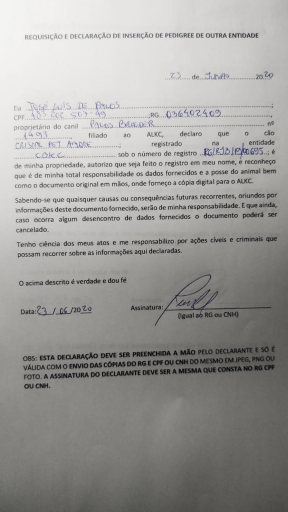 REQUISIÇÃO E DECLARAÇÃO DE INSERÇÃO DE PEDIGREE DE OUTRA ENTIDADE
23 de Junho 2020
Eu José Luis de
CPF RG 036402409
proprietário do canil Breeder nº
1493 filiado ao ALKC, declaro que o cão
registrado na entidade
sob o número de registro é
de minha propriedade, autorizo que seja feito o registro em meu nome, e reconheço
que é de minha total responsabilidade os dados fornecidos e a posse do animal bem
como o documento original em mãos, onde forneço a cópia digital para o ALKC.
Sabendo-se que quaisquer causas ou consequências futuras recorrentes, oriundos por
informações deste documento fornecido, serão de minha responsabilidade. E que ainda,
caso ocorra algum desencontro de dados fornecidos o documento poderá ser
cancelado.
Tenho ciência dos meus atos e me responsabilizo por ações cíveis e criminais que
possam recorrer sobre as informações aqui declaradas.
O acima descrito é verdade e dou fé
Data: 23 / 06 / 2020 Assinatura:
(Igual só RG ou CNH)
OBS: ESTA DECLARAÇÃO DEVE SER PREENCHIDA A MÃO PELO DECLARANTE E SÓ É
VÁLIDA COM O ENVIO DAS CÓPIAS DO RG E CPF OU CNH DO MESMO EM JPEG, PNG OU
FOTO. A ASSINATURA DO DECLARANTE DEVE SER A MESMA QUE CONSTA NO RG CPF
OU CNH.